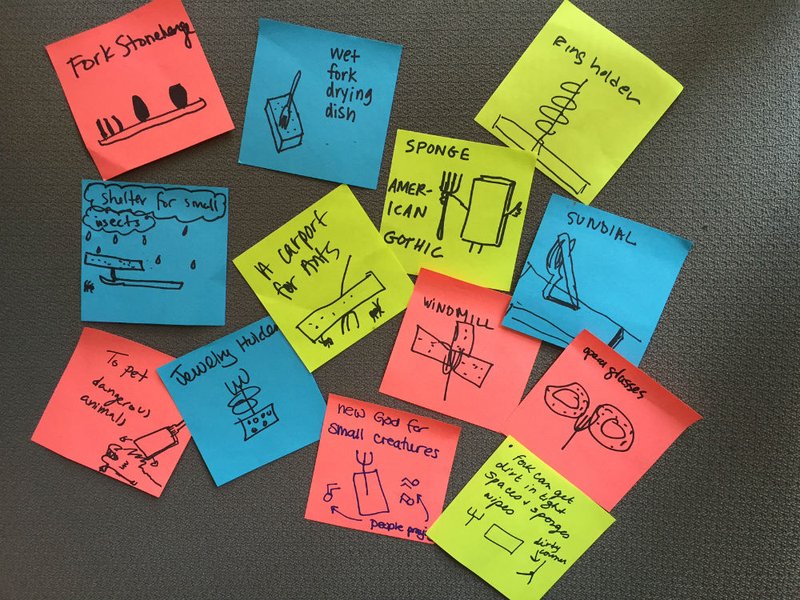 Fork Stonehenge
wet
fork
drying
dish
Ring holder
SPONGE
AMER-
ICAN
GOTHIC
shelter for small
insects
A carport
for Ants
SUNDIAL
WINDMILL
To pet
dangerous
animals
Jewelry Holder
opera glasses
new God for
small creatures
People prayi
• Fork can get
dirt in tight
spaces & sponges
wipes
dirty
corner